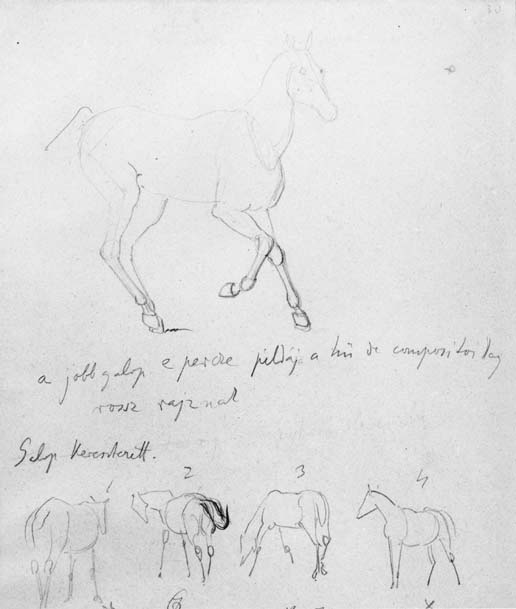 30
a jobb galop e percze példája a hű de compositoilag
rossz rajznak
Galop
1 2 3 4
6